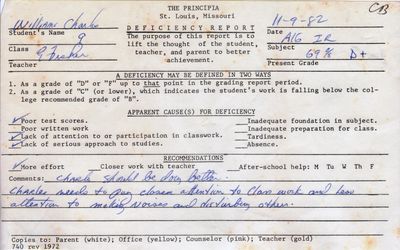 THE PRINCIPIA
St. Louis, Missouri
CB
Williams Charles
Student's Name
9
Class
Teacher
DEFICIENCY REPORT
The purpose of this report is to
lift the thought of the student,
teacher, and parent to better
achievement.
11-9-82
Date
Subject
69% D+
Present Grade
A DEFICIENCY MAY BE DEFINED IN TWO WAYS
1. As a grade of "D" or "F" up to that point in the grading report period.
2. As a grade of "C" (or lower), which indicates the student's work is falling below the col-
lege recommended grade of "B".
APPARENT CAUSE(S) FOR DEFICIENCY
✓Poor test scores.
Poor written work
✓Lack of attention to or participation in classwork.
✓Lack of serious approach to studies.
Inadequate foundation in subject.
Inadequate preparation for class.
Tardiness.
Absence.
RECOMMENDATIONS
✓More effort Closer work with teacher After-school help: M Tu W Th F
Comments: Charles should be doing better.
Charles needs to pay closer attention to class work and less
attention to making noises and disturbing others.
Copies to: Parent (white); Office (yellow); Counselor (pink); Teacher (gold)
740 rev 1972